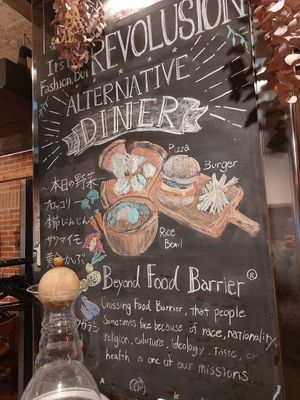 It's
Fashion, But
REVOLUSION
ALTERNATIVE
DINER
Pizza
Burger
Rice
Bowl
～本日の野菜
ブロッコリー
本郷にんじん
サツマイモ
黄かぶ
Beyond Food Barrier ®
Crossing Food Barrier, that people
Sometimes face because of race, nationality,
religion, culuture, ideology, taste, or
health is one of our missions.